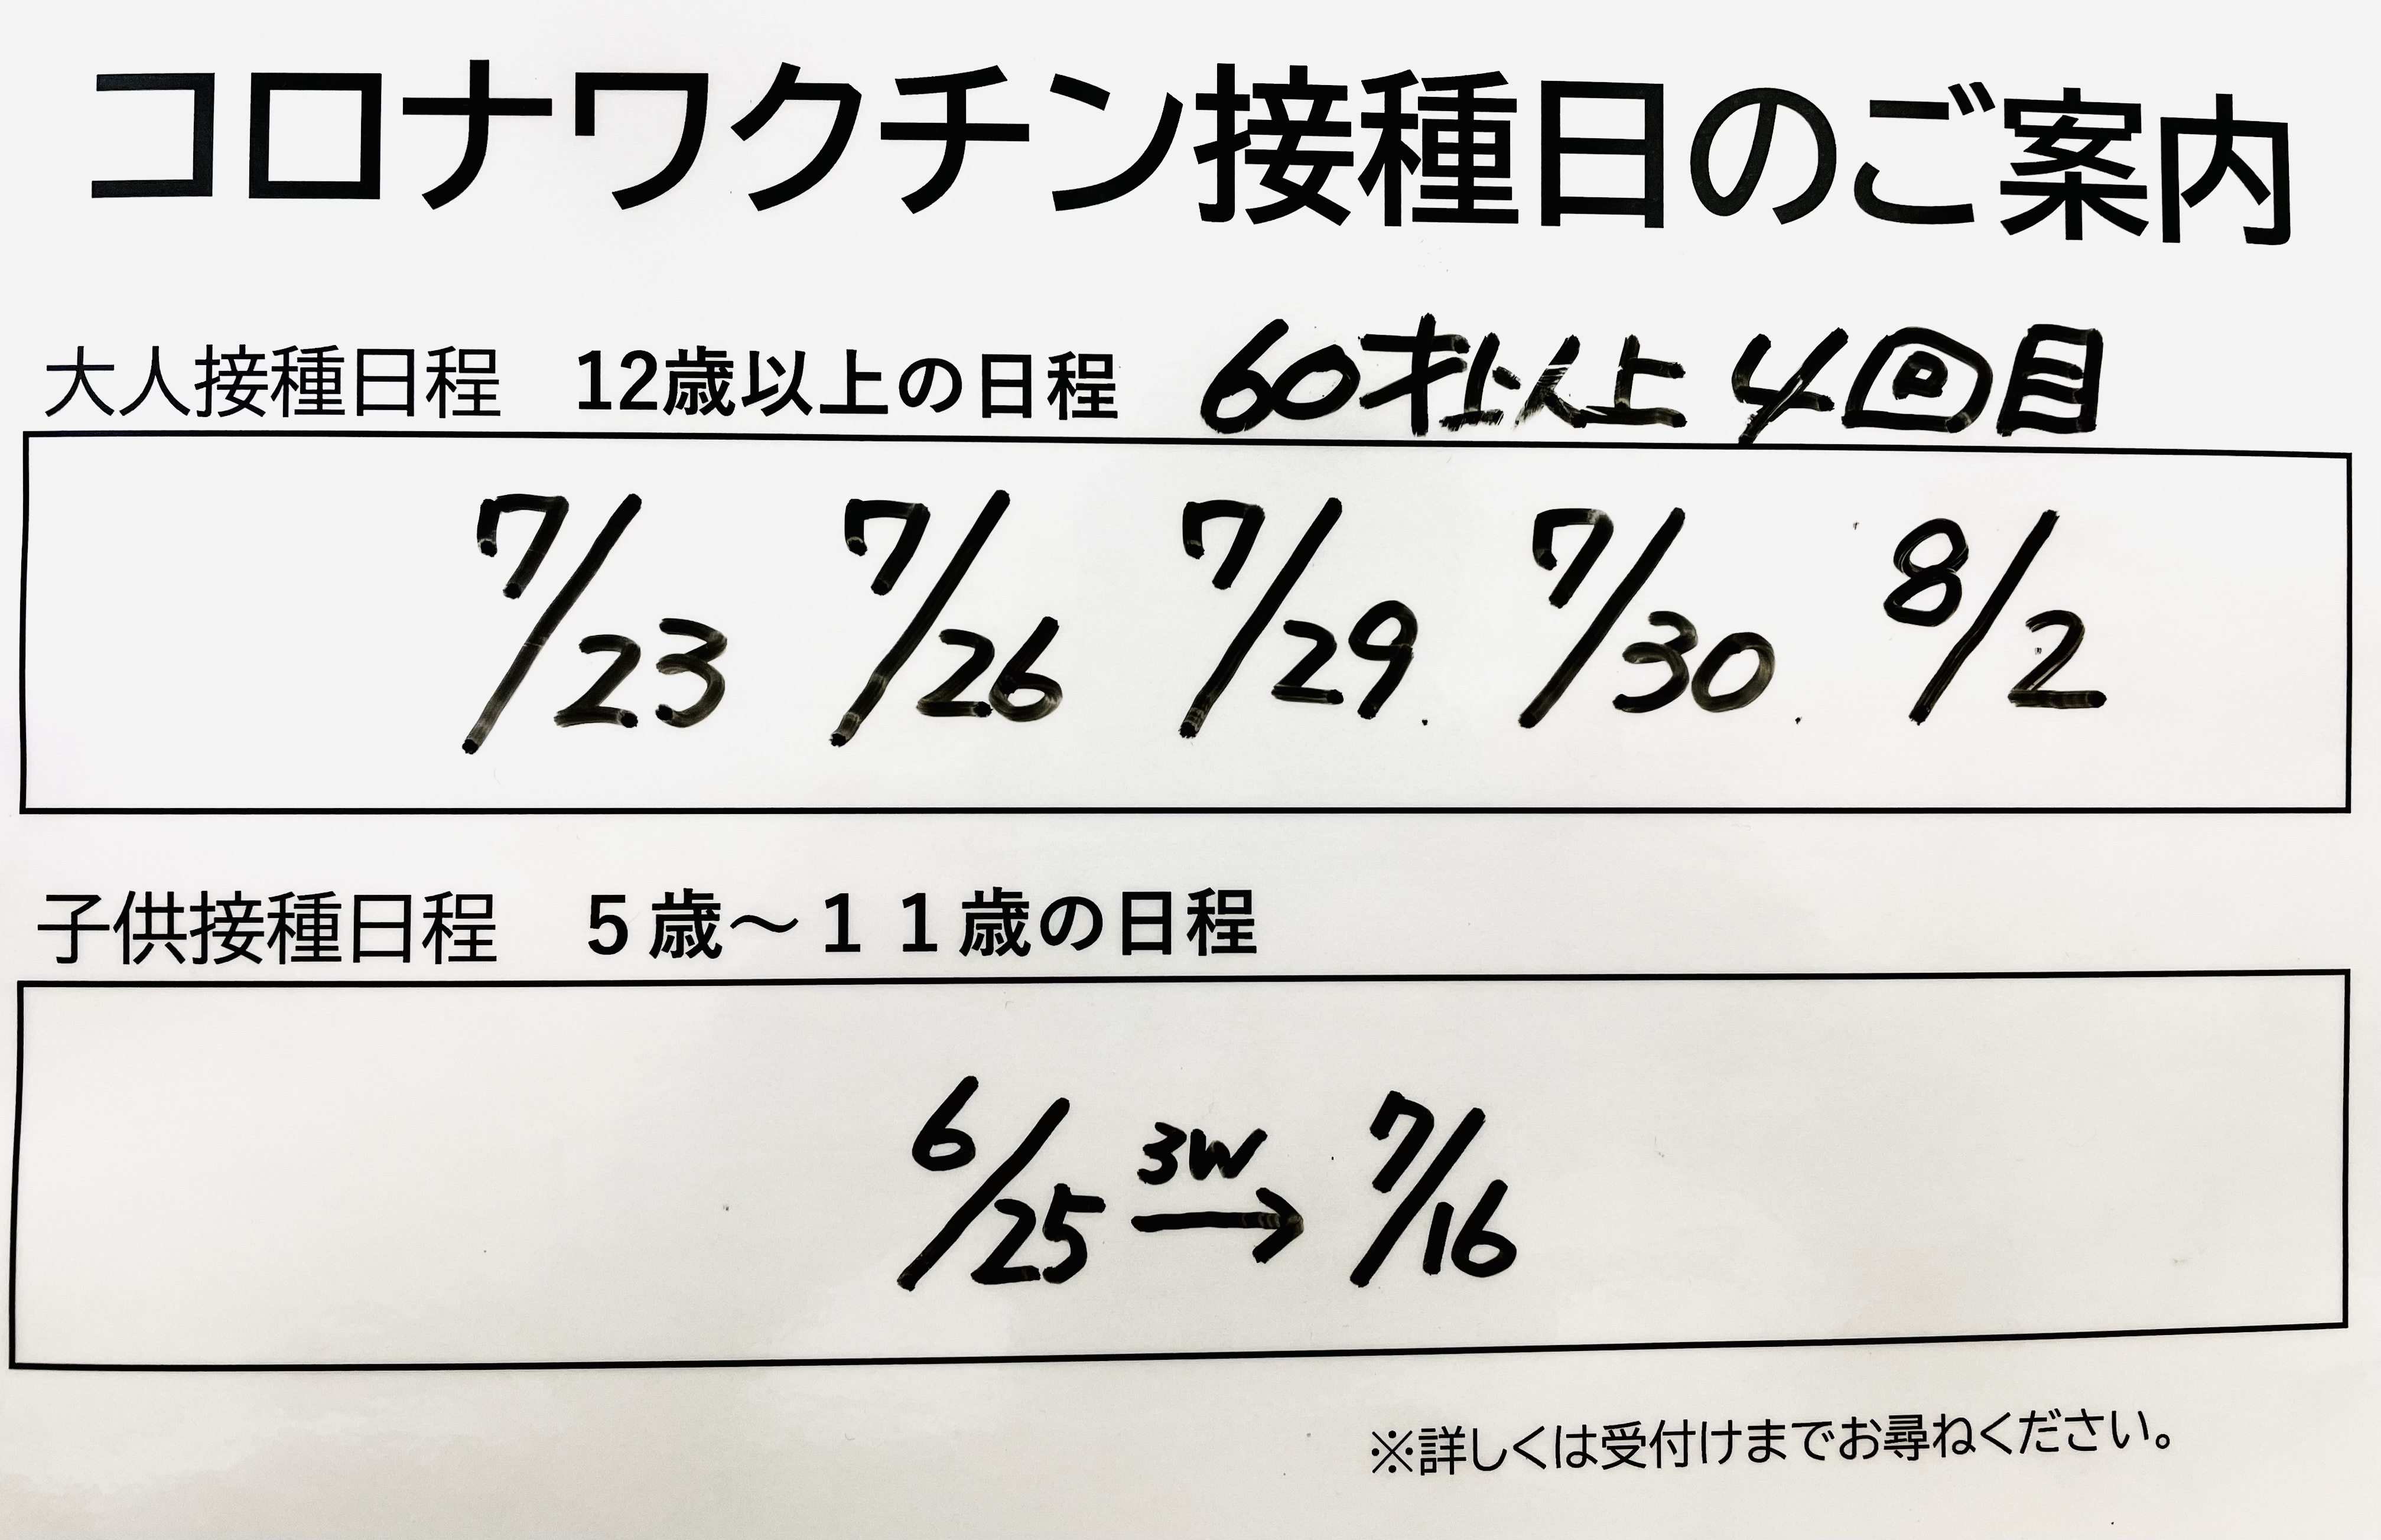 コロナワクチン接種日のご案内
大人接種日程　12歳以上の日程　60才以上 4回目
7/23 7/26 7/29. 7/30. 8/2
子供接種日程　５歳～１１歳の日程
6/25 3W→ 7/16
※詳しくは受付けまでお尋ねください。